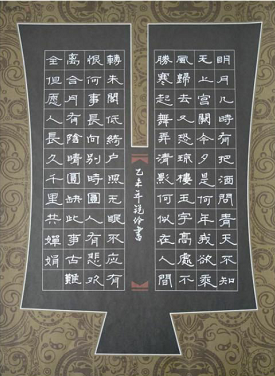 明月几時有把酒問青天不知
天上宮闕今夕是何年我欲乘
風歸去又恐瓊樓玉宇高處不
勝寒起舞弄清影何似在人間
乙未年書
轉朱閣低綺户照无眠不应有
恨何事長向別時圓人有悲欢
離合月有陰晴圓缺此事古難
全但愿人長久千里共嬋娟